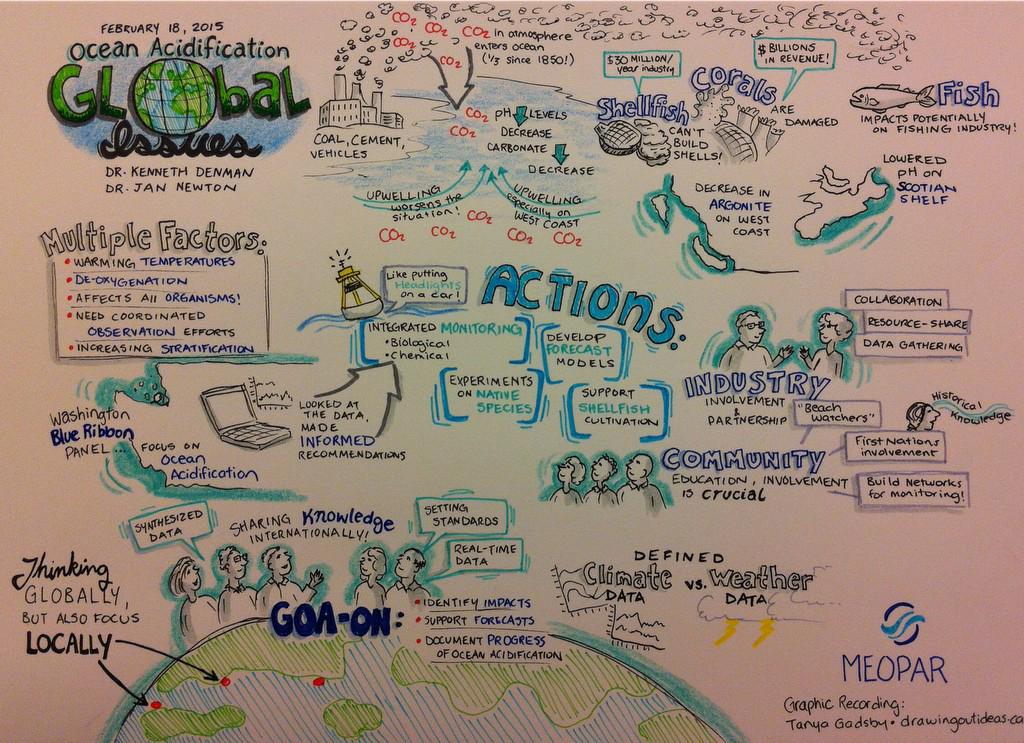 FEBRUARY 18, 2015
Ocean Acidification
GLObal
Issues
DR. KENNETH DENMAN
DR. JAN NEWTON
CO2
CO2
CO2
CO2
CO2
CO2 in atmosphere
enters ocean
(1/3 since 1850!)
COAL, CEMENT,
VEHICLES
CO2
CO2
PH LEVELS
DECREASE
CARBONATE
DECREASE
UPWELLING
worsens the
situation!
UPWELLING
especially on
WEST COAST
CO2
CO2
CO2
CO2
CO2
$30 MILLION/
year industry
Shellfish
CAN'T
BUILD
SHELLS!
$ BILLIONS
IN REVENUE!
CORALS
ARE
DAMAGED
Fish
IMPACTS POTENTIALLY
ON FISHING INDUSTRY!
DECREASE IN
ARGONITE
ON WEST
COAST
LOWERED
PH ON
SCOTIAN
SHELF
Multiple Factors:
• WARMING TEMPERATURES
• DE-OXYGENATION
• AFFECTS All ORGANISMS!
• NEED COORDINATED
OBSERVATION EFFORTS
• INCREASING STRATIFICATION
Like putting
Headlights
on a car!
ACTIONS:
INTEGRATED MONITORING
• Biological
• Chemical
DEVELOP
FORECAST
MODELS
EXPERIMENTS
ON NATIVE
SPECIES
SUPPORT
SHELLFISH
CULTIVATION
Washington
Blue Ribbon
PANEL...
FOCUS ON
Ocean
Acidification
LOOKED AT
THE DATA,
MADE
INFORMED
RECOMMENDATIONS
COLLABORATION
RESOURCE-SHARE
DATA GATHERING
INDUSTRY
INVOLVEMENT
&
PARTNERSHIP
"Beach
Watchers"
Historical
Knowledge
First Nations
involvement
COMMUNITY
EDUCATION, INVOLVEMENT
IS crucial
Build Networks
for monitoring!
SYNTHESIZED
DATA
SHARING Knowledge
INTERNATIONALLY!
SETTING
STANDARDS
REAL-TIME
DATA
Thinking
GLOBALLY,
BUT ALSO FOCUS
LOCALLY
GOA-ON:
• IDENTIFY IMPACTS
• SUPPORT FORECASTS
• DOCUMENT PROGRESS
OF OCEAN ACIDIFICATION
DEFINED
Climate vs. Weather
DATA
DATA
MEOPAR
Graphic Recording:
Tanya Gadsby • drawingoutideas.ca